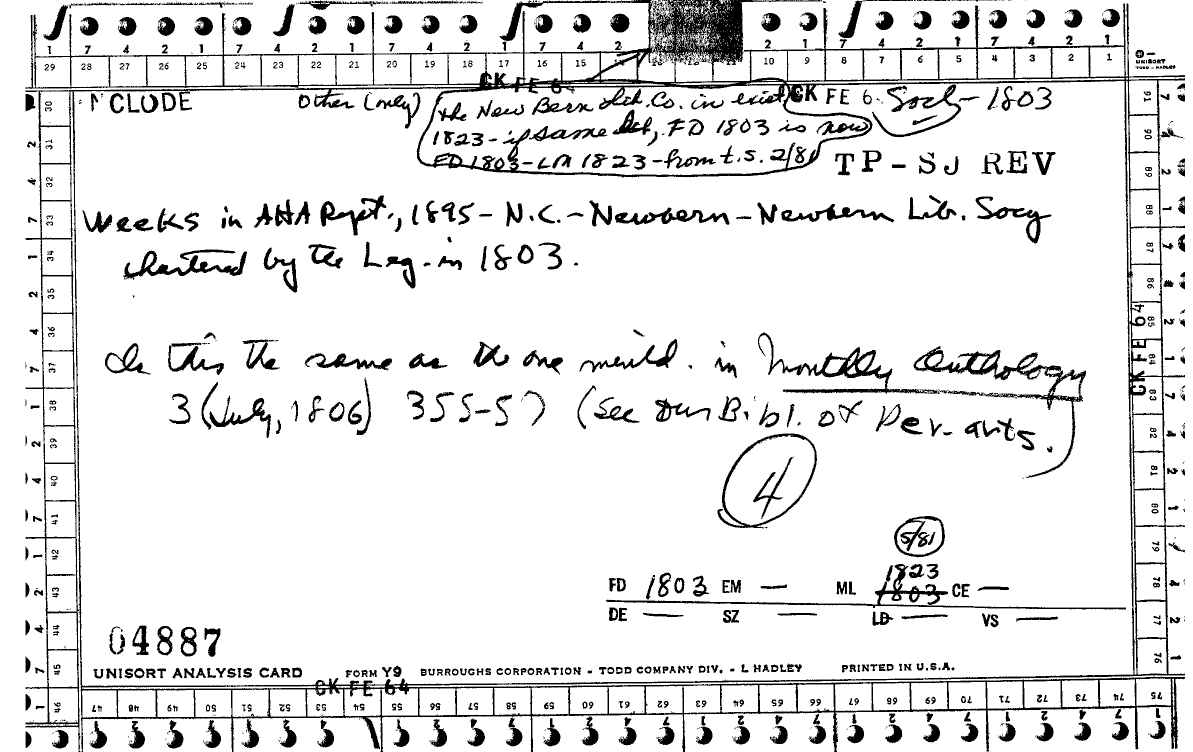 1 7 4 2 1 7 4 2 1 7 4 2 1 7 4 2 2 1 7 4 2 1 7 4 2 1
29 28 27 26 25 24 23 22 21 20 19 18 17 16 15 10 9 8 7 6 5 4 3 2 1
UNISORT
TODD - HADLEY
CK FE 6
CLUDE Other (only) the New Bern Lib. Co. in exist CK FE 6 Socl - 1803
1823 - if same lib, FD 1803 is now
FD 1803 - LM 1823 - from t.s. 2/81 TP-SJ REV
Weeks in AHA Rept., 1895 - N.C. - Newbern - Newbern Lib. Socy
chartered by the Leg. in 1803.
Is this the same as the one mentd. in Monthly Anthology
3 (July, 1806) 355-57 (See our Bibl. of Per. arts.
4
5/81
1823
FD 1803 EM — ML 1803 CE —
DE — SZ — LD — VS —
04887
UNISORT ANALYSIS CARD FORM Y9 BURROUGHS CORPORATION - TODD COMPANY DIV. - L HADLEY PRINTED IN U.S.A.
CK FE 64
47 48 49 50 51 52 53 54 55 56 57 58 59 60 61 62 63 64 65 66 67 68 69 70 71 72 73 74 75
30 31 32 33 34 35 36 37 38 39 40 41 42 43 44 45 46
91 90 89 88 87 86 85 84 83 82 81 80 79 78 77 76
CK FE 64